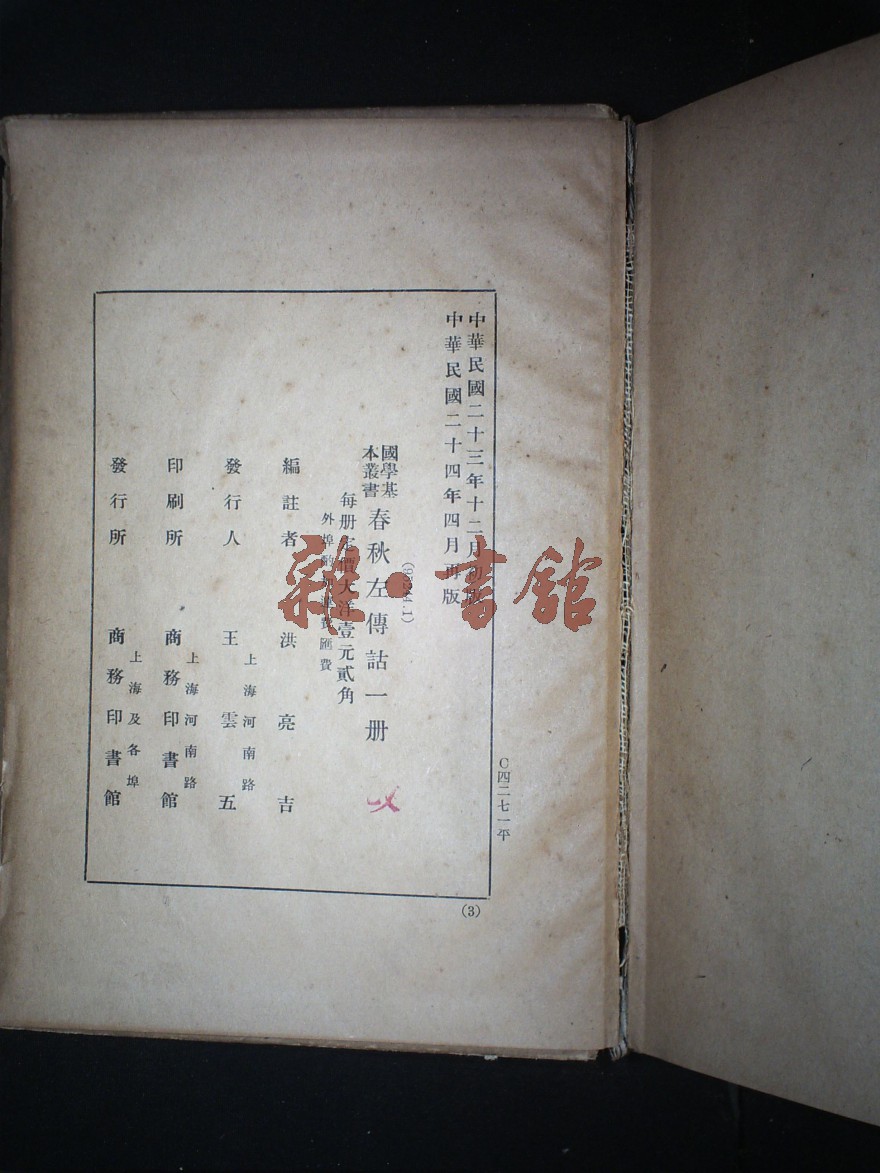 中華民國二十三年十二月初版
中華民國二十四年四月再版
國學基
本叢書
春秋左傳詁一册
每册定價大洋壹元貳角
外埠酌加運費匯費
編註者 洪亮吉
上海河南路
發行人 王雲五
上海河南路
印刷所 商務印書館
上海及各埠
發行所 商務印書館
C四二七一平
(3)
雜·書館